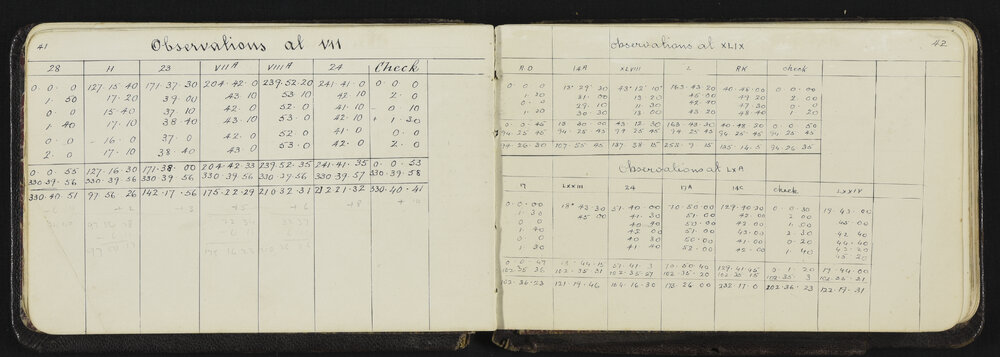 41
Observations at VII
28 H 23 VIIA VIIIA 24 Check
0. 0. 0 127. 15 40 171. 37. 30 204. 42. 0 239. 52. 20 241. 41. 0 0. 0. 0
1. 50 17. 20 39. 00 43. 10 53. 10 42. 10 2. 0
0. 0 15. 40 37. 10 42. 0 52. 0 41. 10 - 0. 10
1. 40 17. 10 38. 40 43. 10 53. 0 42. 10 + 1. 30
0. 0 - 16. 0 37. 0 42. 0 52. 0 41. 0 0. 0
2. 0 17. 10 38. 40 43. 0 53. 0 42. 0 2. 0
0. 0. 55 127. 16. 30 171. 38. 00 204. 42. 33 239. 52. 35 241. 41. 35 0. 0. 53
330. 39. 56 330. 39. 56 330 39. 56 330. 39. 56 330. 39. 56 330. 39. 57 330. 39. 58
330. 40. 51 97. 56 26 142. 17. 56 175. 22. 29 210. 32. 31 212. 21. 32 330. 40. 41
42
Observations at XLIX
R.O 14A XLVIII L RK check
0. 0. 0 13. 29. 30 43. 12. 10 163. 43. 20 40. 48. 00 0. 0. 00
1. 30 31. 00 13. 20 45. 00 49. 20 2. 00
0. 0 29. 10 11. 30 42. 40 47. 30 0. 0
1. 20 30. 30 13. 00 43. 20 48. 40 1. 20
0. 0. 45 13. 30 00 43. 12 30 163. 43. 30 40. 48. 20 0. 0. 50
94. 25 45 94. 25 45 94 25 45 94 25 45 94. 25. 45 94. 25 45
94. 26. 30 107. 55 45 137. 38 15 258. 9. 15 135. 14. 5 94. 26 35
Observations at LXA
17 LXXIII 24 17A 14C check LXXIV
0. 0. 00 18. 43. 30 51. 40. 00 70. 50. 00 129. 40. 30 0. 0. 30 19. 43. 00
1. 30 45. 00 41. 30 51. 00 42. 00 2. 00 45. 00
0. 0 40. 40 50. 00 42. 00 1. 00
1. 40 42. 00 51. 00 43. 00 2. 30 42. 40
0. 0 40. 30 50. 00 41. 00 0. 20 44. 40
1. 30 41. 40 52. 00 42. 00 1. 40 43. 20
45. 20
0. 0. 47 18. 44. 15 51. 41. 3 70. 50. 40 129. 41. 45 0. 1. 20 19. 44. 00
102. 35 36 102. 35. 31 102. 35. 27 102. 35. 20 102. 35 15 102. 35. 3 102. 35. 31
102. 36. 23 121. 19. 46 154. 16. 30 173. 26. 00 232. 17. 0 102. 36. 23 122. 19. 31